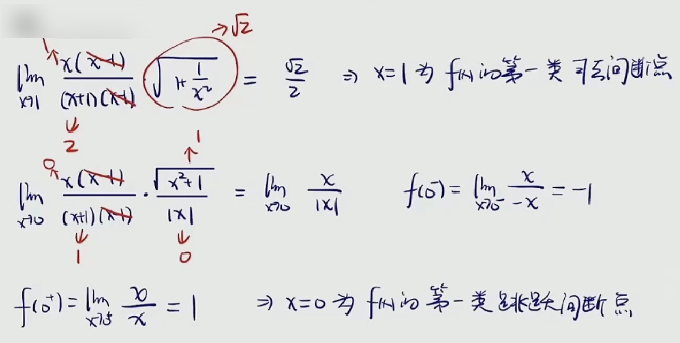 1 →√2
lim x→1 x(x-1)/((x+1)(x-1)) √(1+1/x²) = √2/2 ⇒ x=1 为 f(x) 的第一类可去间断点
2
0 1
lim x→0 x(x-1)/((x+1)(x-1)) · √(x²+1)/|x| = lim x→0 x/|x| f(0⁻)= lim x→0⁻ x/-x = -1
1 0
f(0⁺)= lim x→0⁺ x/x = 1 ⇒ x=0 为 f(x) 的第一类跳跃间断点